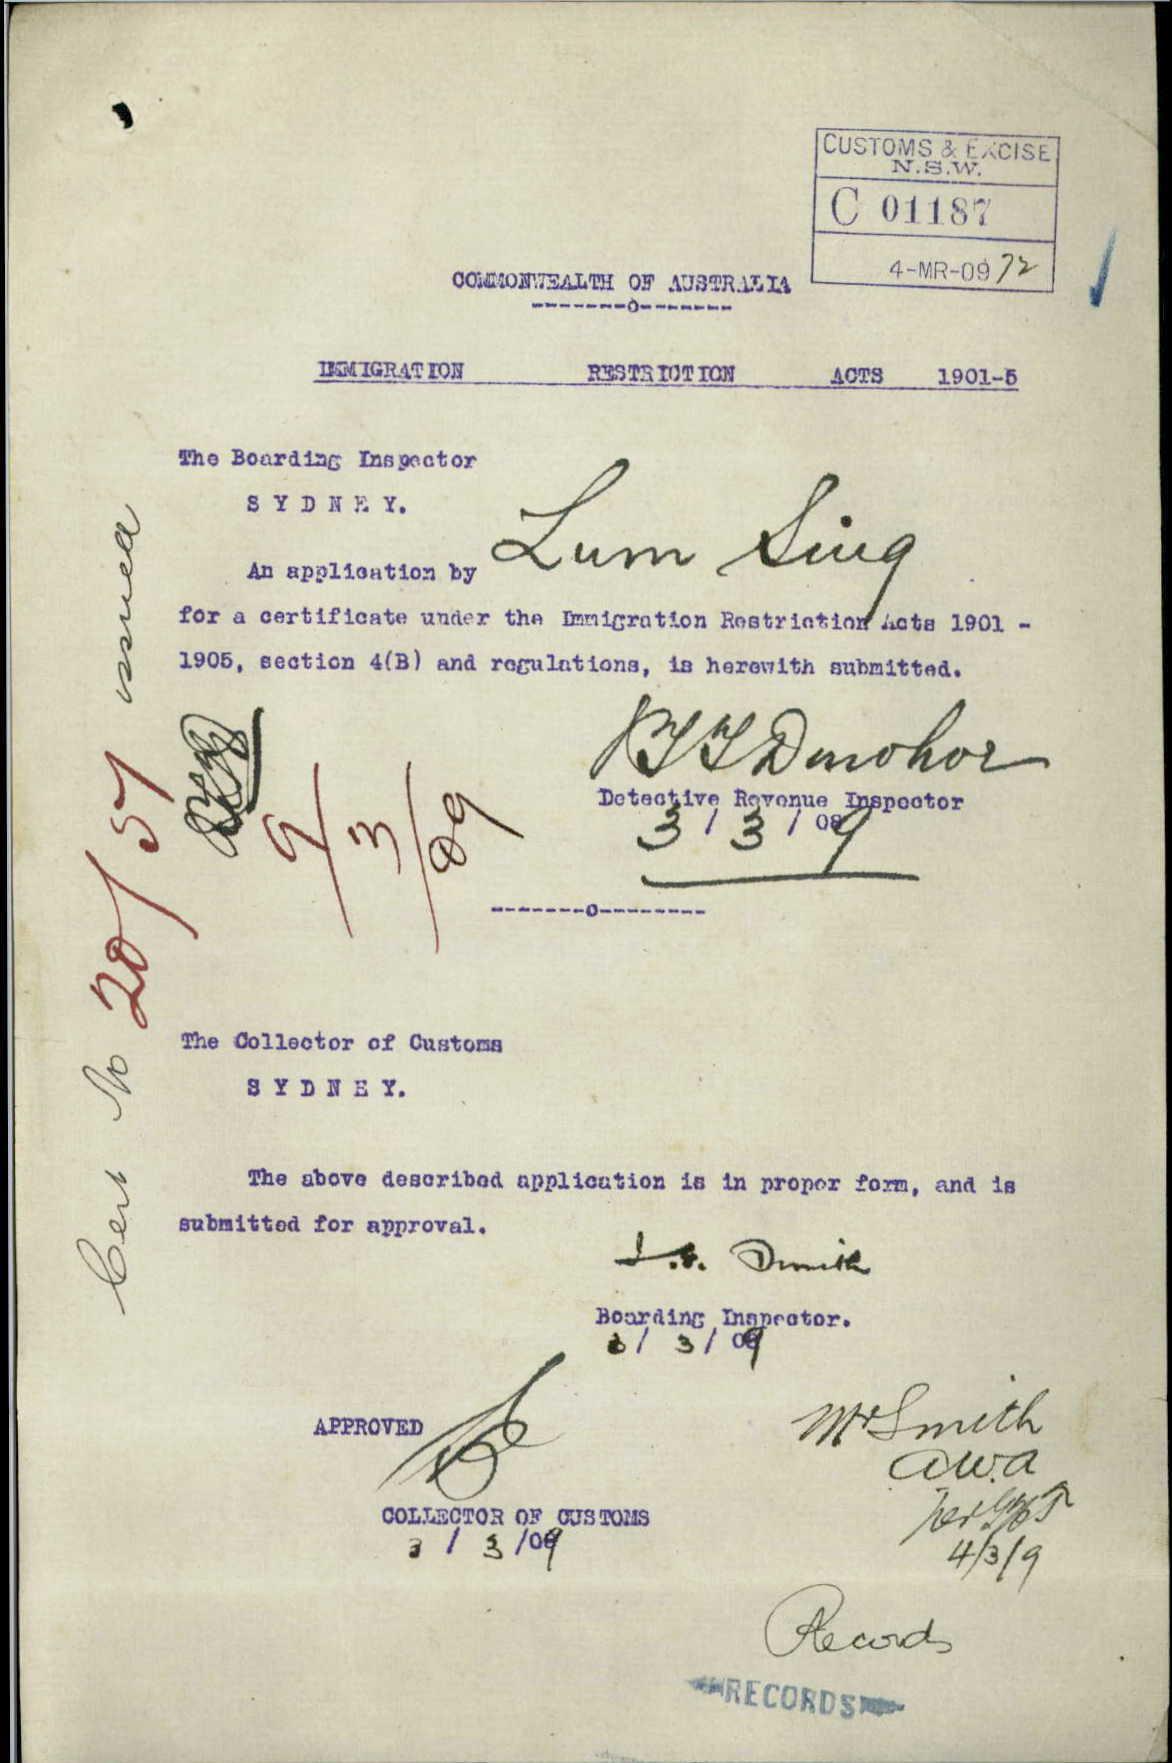 CUSTOMS & EXCISE
N.S.W.
C 01187
4-MR-09 72
COMMONWEALTH OF AUSTRALIA
-------o-------
IMMIGRATION RESTRICTION ACTS 1901-5
The Boarding Inspector
SYDNEY.
An application by Lum Sing
for a certificate under the Immigration Restriction Acts 1901 -
1905, section 4(B) and regulations, is herewith submitted.
Donohoe
Detective Revenue Inspector
3 / 3 / 09
-------o---------
Cert No 20/57 issued
9/3/09
The Collector of Customs
SYDNEY.
The above described application is in proper form, and is
submitted for approval.
Boarding Inspector.
3/ 3/ 09
APPROVED
COLLECTOR OF CUSTOMS
3 / 3 /09
Mr Smith
a.w.a
4/3/9
Records
RECORDS